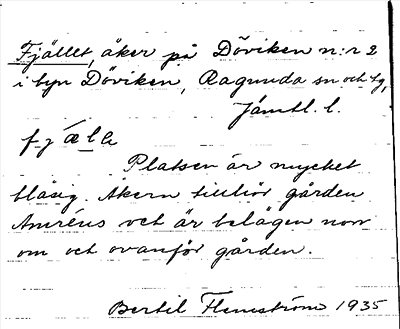 Fjället, åker på Döviken n:r 2
i byn Döviken, Ragunda sn och tg,
Jämtl. l.
fjæla
Platsen är mycket
blåsig. Åkern tillhör gården
Amréns och är belägen norr
om och ovanför gården.
Bertil Flemström 1935